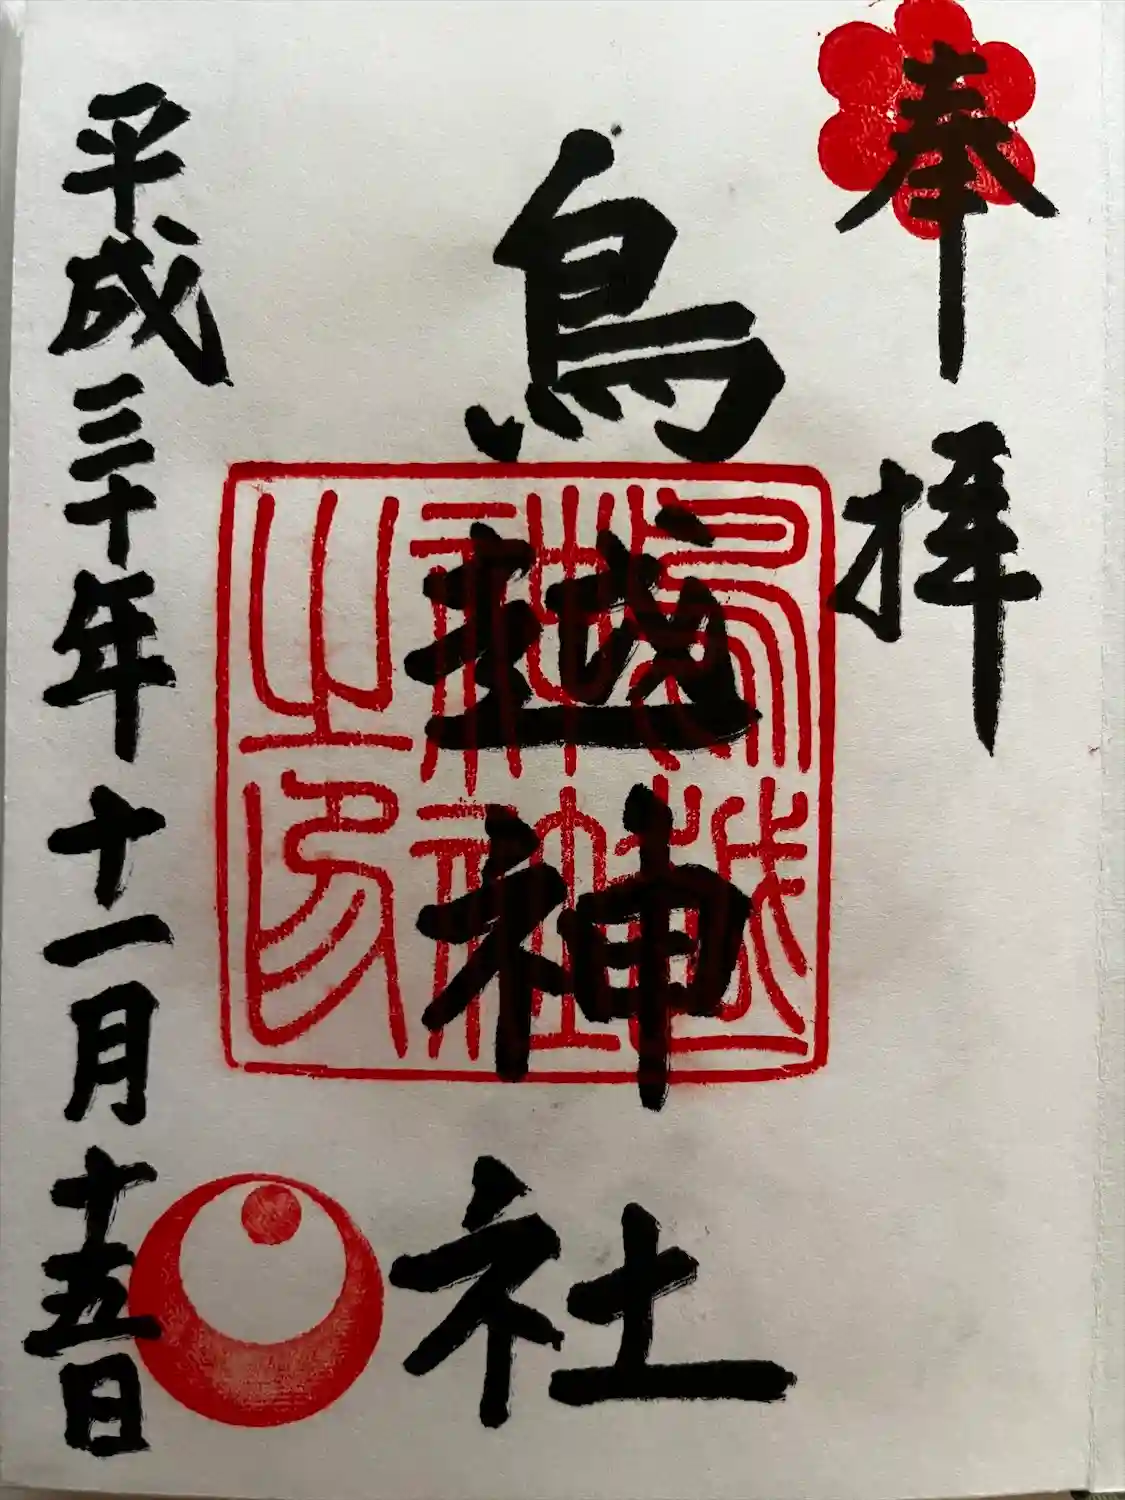 奉拝
鳥越神社
鳥越
神社
之印
平成三十年十一月十五日